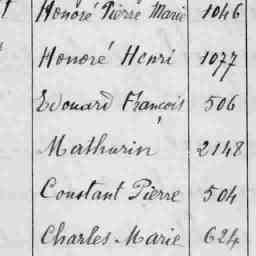 Honoré Pierre Marie 1046
Honoré Henri 1077
Edouard François 506
Mathurin 2148
Constant Pierre 504
Charles Marie 624